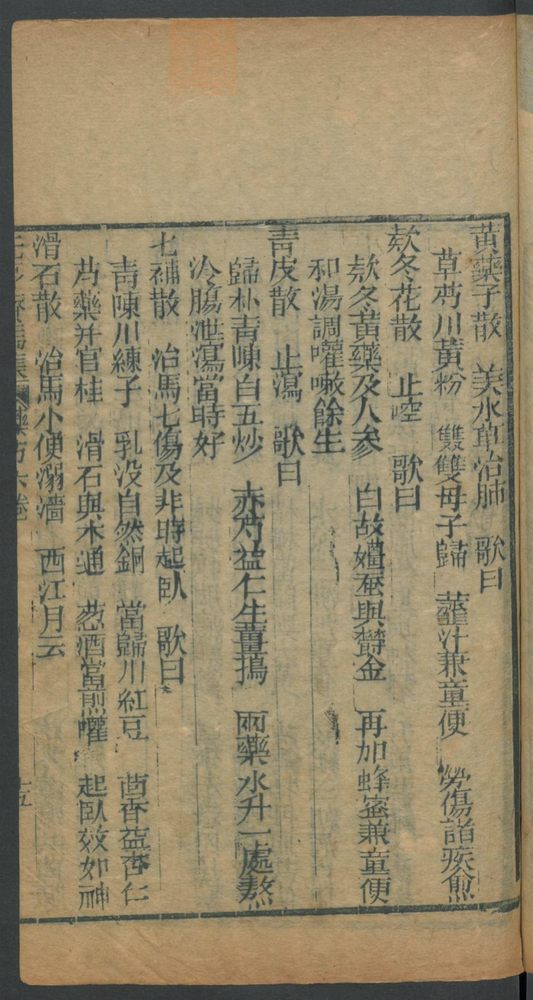 黃藥子散　美水草治肺　歌曰
草芍川黃粉　雙雙母子歸　虀汁兼童便　勞傷諸疾愈
欵冬花散　止啌　歌曰
欵冬黃藥及人參　白故殭蚕與欝金　再加蜂蜜兼童便
和湯調嚾嗽餘生
青皮散　止瀉　歌曰
歸朴青陳白五炒　赤芍益仁生薑搗　兩藥水升一處熬
冷腸泄瀉當時好
七補散　治馬七傷及非時起臥　歌曰
青陳川練子　乳没自然銅　當歸川紅豆　茴香益杏仁
芍藥并官桂　滑石與木通　葱酒當煎嚾　起臥效如神
滑石散　治馬小便溺濇　西江月云
藥方六卷
十五